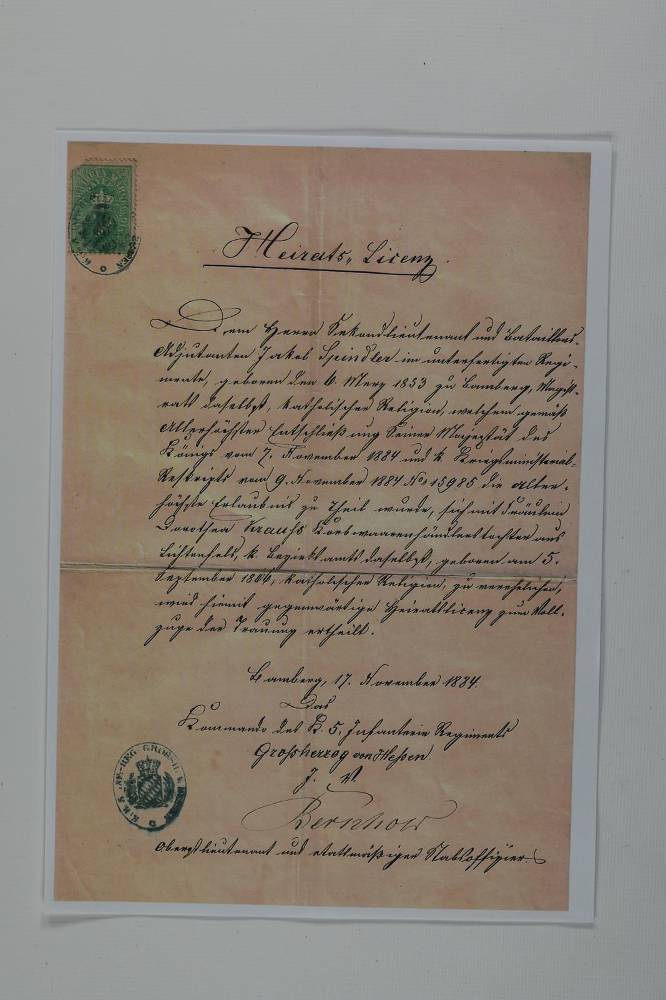 Heirats-Licenz.
Dem Herrn Sekondlieutenant und Bataillons-
Adjutanten Jakob Spindler im unterfertigten Regi-
mente, geboren den 6. Merz 1853 zu Bamberg, Magist-
rats daselbst, katholischer Religion, welchem gemäß
Allerhöchster Entschließung Seiner Majestät des
Königs vom 7. November 1884 und k. Kriegsministerial-
Reskripts vom 9. November 1884 No 15985 die Aller-
höchste Erlaubnis zu Theil wurde, sich mit Fräulein
Dorothea Krauß Korbwaarenhändlerstochter aus
Lichtenfels, k. Bezirksamts daselbst, geboren am 5.
September 1866, katholischer Religion, zu verehelichen,
wird hiemit gegenwärtige Heiratslicenz zum Voll-
zuge der Trauung ertheilt.
Bamberg, 17. November 1884.
Das
Kommando des K. 5. Infanterie Regiments
Großherzog von Hessen
J. V.
Bernhold
Oberstlieutenant und etatsmäßiger Stabsoffizier